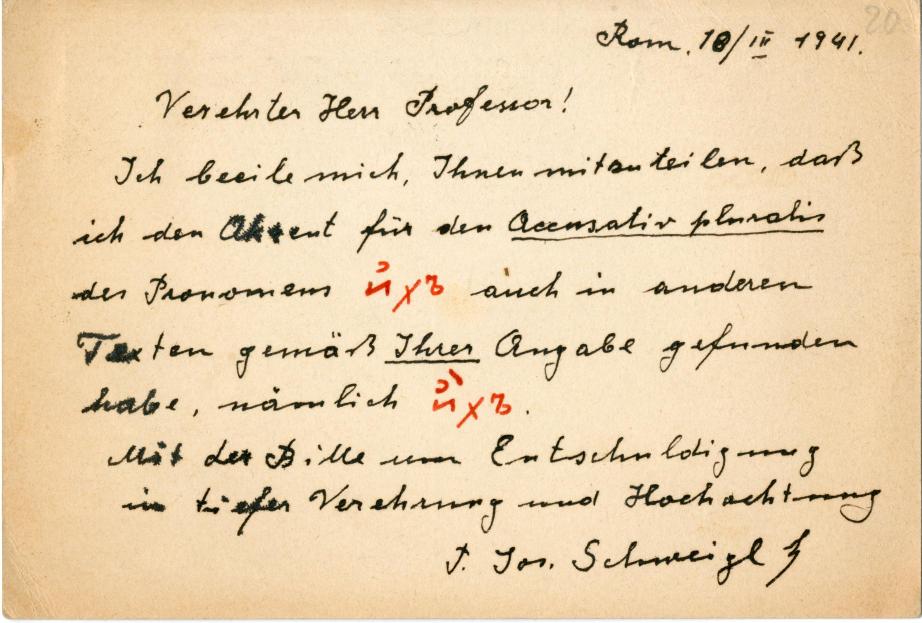 20
Rom, 18/III 1941.
Verehrter Herr Professor!
Ich beeile mich, Ihnen mitzuteilen, daß
ich den Akzent für den Accusativ pluralis
des Pronomens и҆хъ auch in anderen
Texten gemäß Ihrer Angabe gefunden
habe, nämlich и҆̀хъ.
Mit der Bitte um Entschuldigung
in tiefer Verehrung und Hochachtung
P. Jos. Schweigl